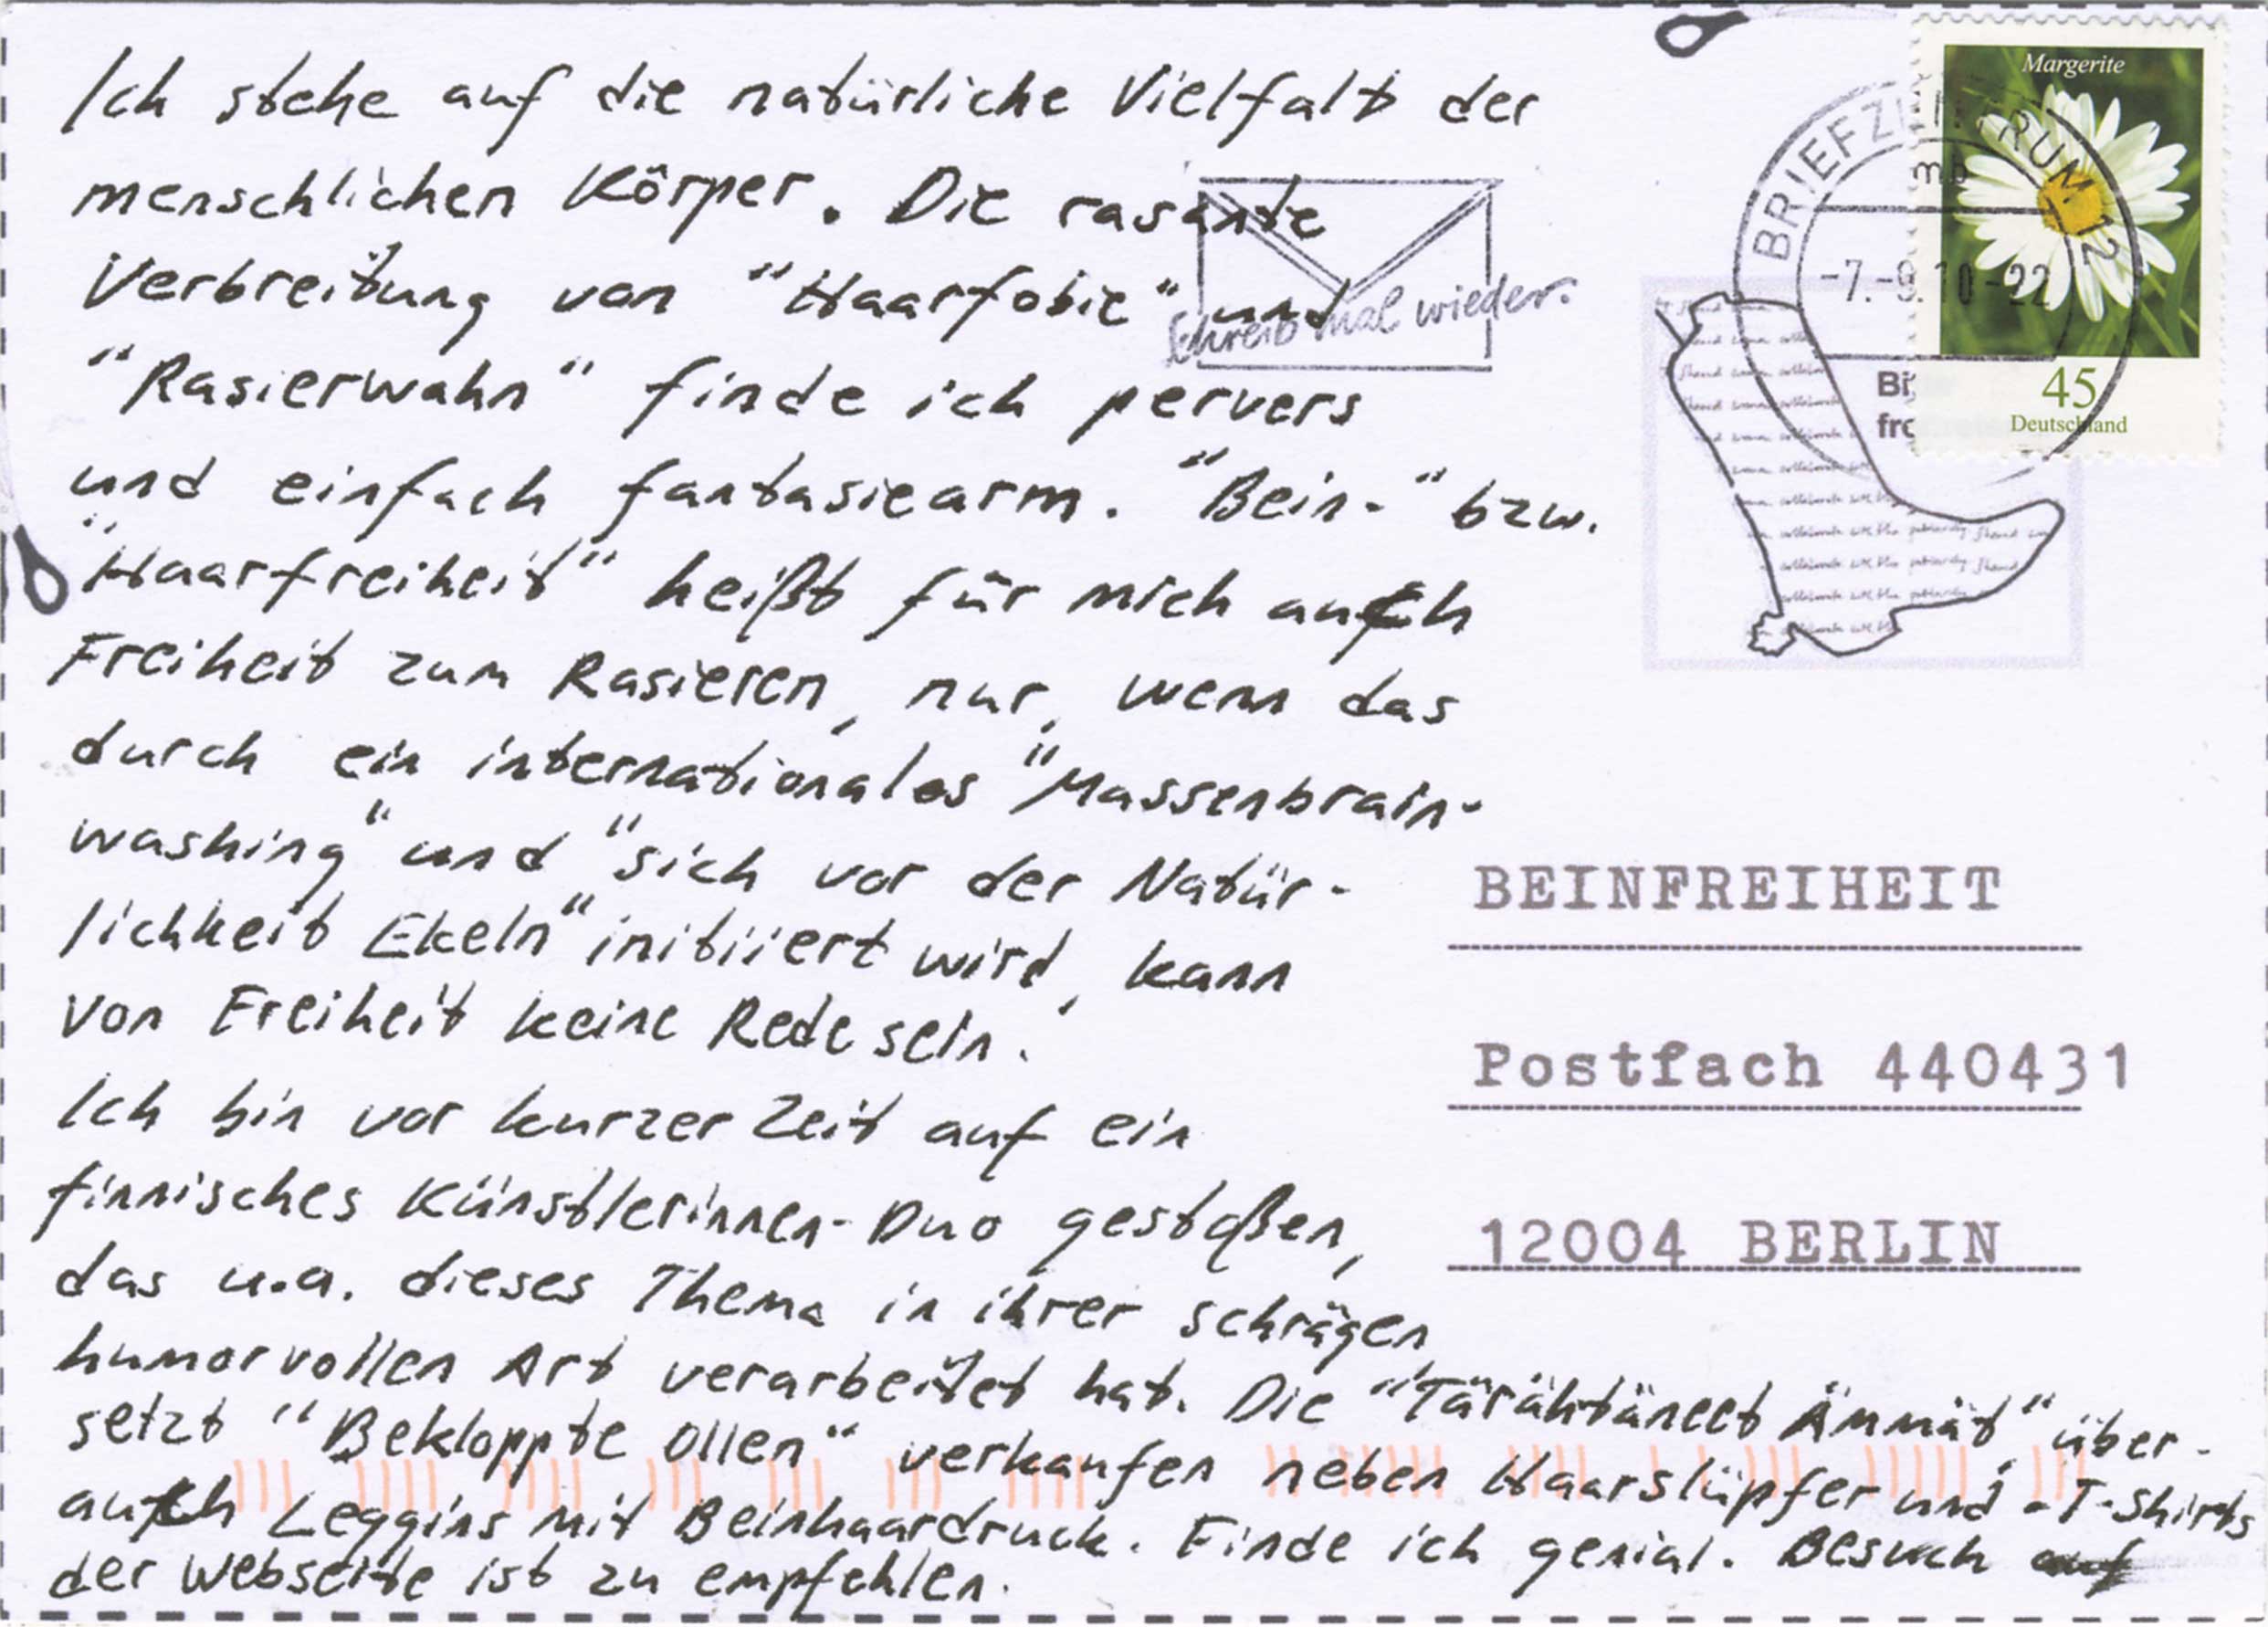 Ich stehe auf die natürliche Vielfalt der
menschlichen Körper. Die rasante
Verbreitung von "Haarfobie" und
"Rasierwahn" finde ich pervers
und einfach fantasiearm. "Bein-" bzw.
"Haarfreiheit" heißt für mich auch
Freiheit zum Rasieren, nur, wenn das
durch ein internationales "Massenbrain-
washing" und "sich vor der Natür-
lichkeit Ekeln" initiiert wird, kann
von Freiheit keine Rede sein.
Ich bin vor kurzer Zeit auf ein
finnisches Künstlerinnen-Duo gestoßen,
das u.a. dieses Thema in ihrer schrägen
humorvollen Art verarbeitet hat. Die "Tärähtäneet Ämmät", über-
setzt "Bekloppte Ollen" verkaufen neben Haarslüpfer und -T-Shirts
auch Leggins mit Beinhaardruck. Finde ich genial. Besuch
der Webseite ist zu empfehlen.
Schreib mal wieder.
Margerite
45
Deutschland
BRIEFZENTRUM 12
mb
-7.-9.10-22
BEINFREIHEIT
Postfach 440431
12004 BERLIN